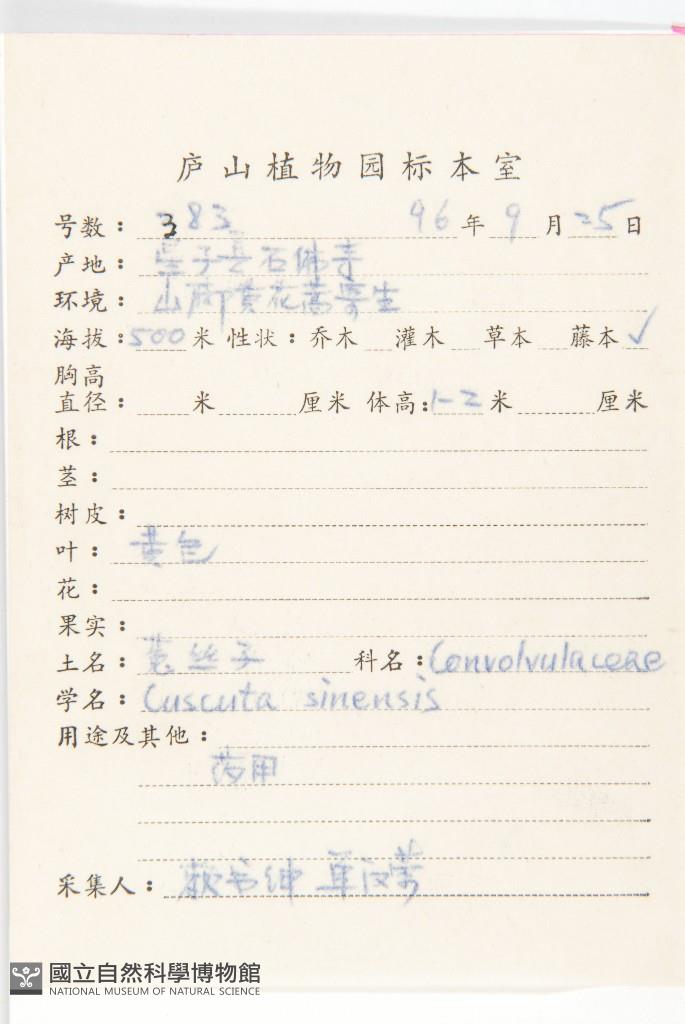 庐山植物园标本室
号数：383 96年9月25日
产地：星子县石佛寺
环境：山脚黄花蒿寄生
海拔：500米 性状：乔木 灌木 草本 藤本✓
胸高
直径： 米 厘米 体高：1-2米 厘米
根：
茎：
树皮：
叶：黄色
花：
果实：
土名：菟丝子 科名：Convolvulaceae
学名：Cuscuta sinensis
用途及其他：
药用
采集人：
國立自然科學博物館
NATIONAL MUSEUM OF NATURAL SCIENCE